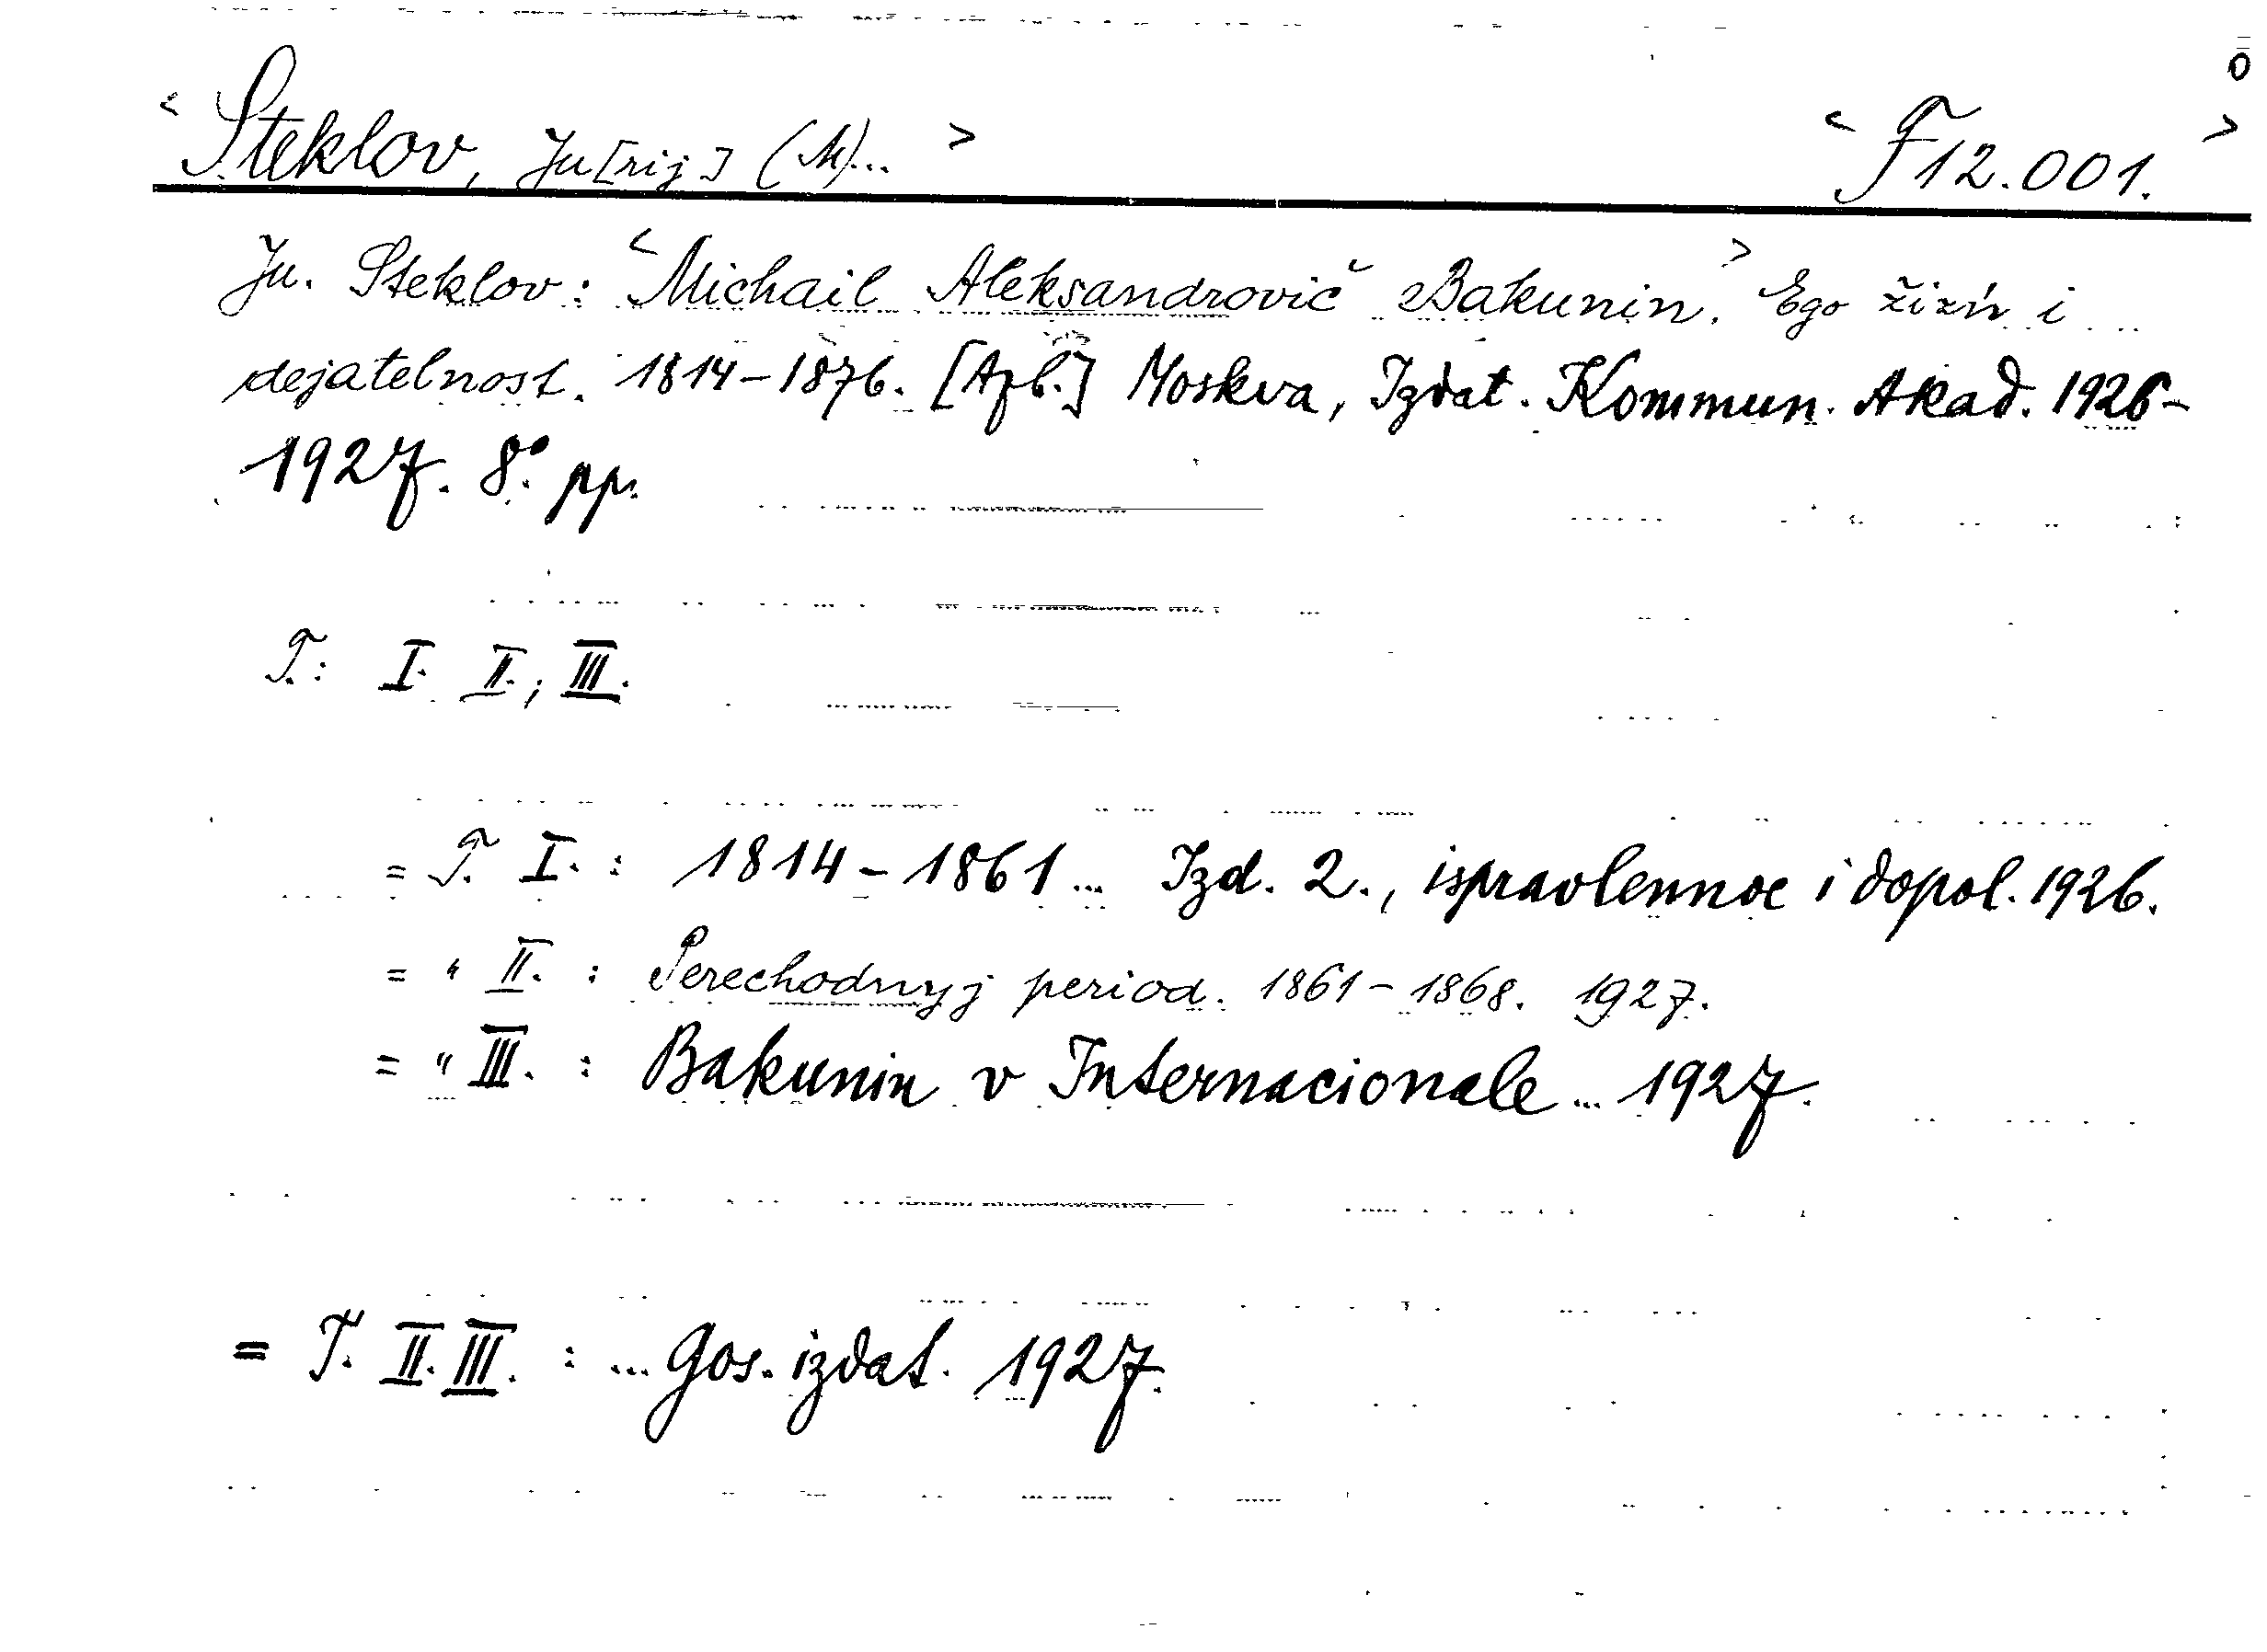 < Steklov, Ju[rij] (M)... > < F12.001. >
Ju. Steklov: <Michail Aleksandrovič Bakunin.> Ego žizń i
dejatelnost. 1814-1876. [Afb.] Moskva, Izdat. Kommun. Akad. 1926-
1927. 8° pp.
T.: I. II.; III.
= T. I. : 1814-1861 ... Izd. 2., ispravlennoe i dopol. 1926.
= " II. : Perechodnyj period. 1861-1868. 1927.
= " III. : Bakunin v Internacionale ... 1927.
= T. II. III. : ... Gos. izdat. 1927.